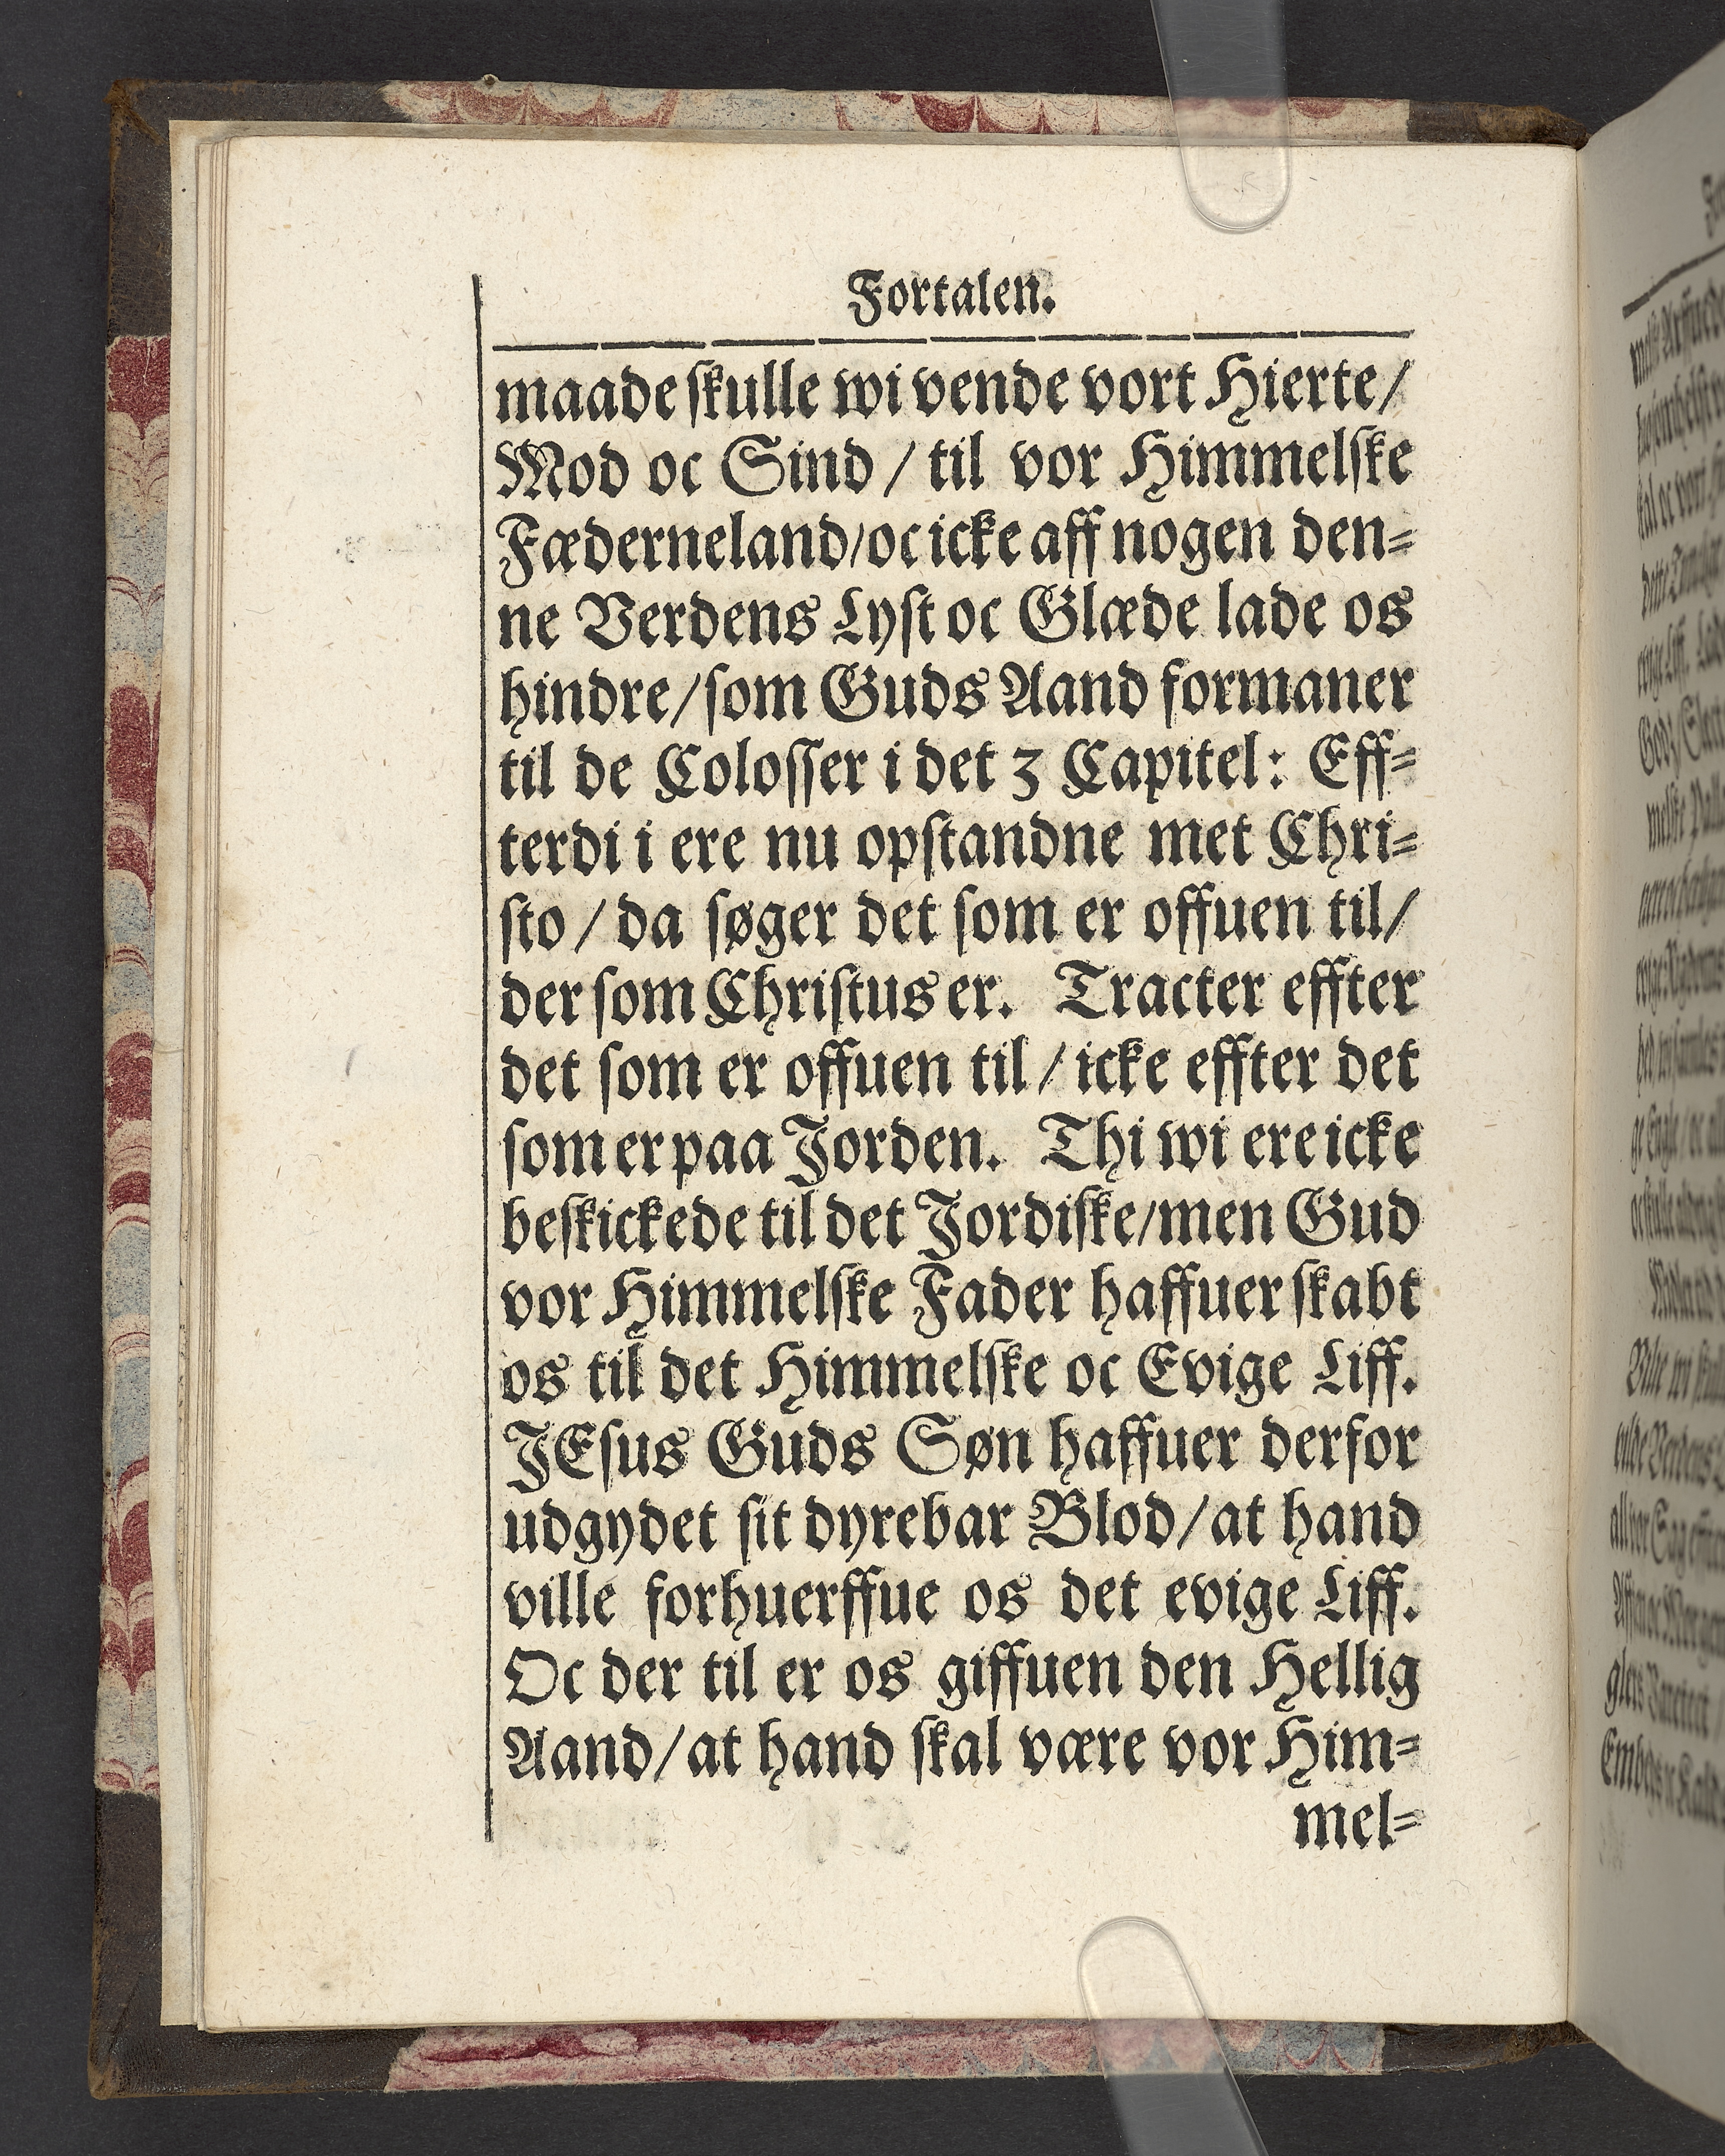 Fortalen.
maade skulle wi vende vort Hierte/
Mod oc Sind / til vor Himmelske
Fæderneland/oc icke aff nogen den=
ne Verdens Lyst oc Glæde lade os
hindre/som Guds Aand formaner
til de Colosser i det 3 Capitel: Eff=
terdi i ere nu opstandne met Chri=
sto / da søger det som er offuen til/
der som Christus er. Tracter effter
det som er offuen til / icke effter det
som er paa Jorden. Thi wi ere icke
beskickede til det Jordiske/men Gud
vor Himmelske Fader haffuer skabt
os til det Himmelske oc Evige Liff.
JEsus Guds Søn haffuer derfor
udgydet sit dyrebar Blod/at hand
ville forhuerffue os det evige Liff.
Oc der til er os giffuen den Hellig
Aand/at hand skal være vor Him=
mel=